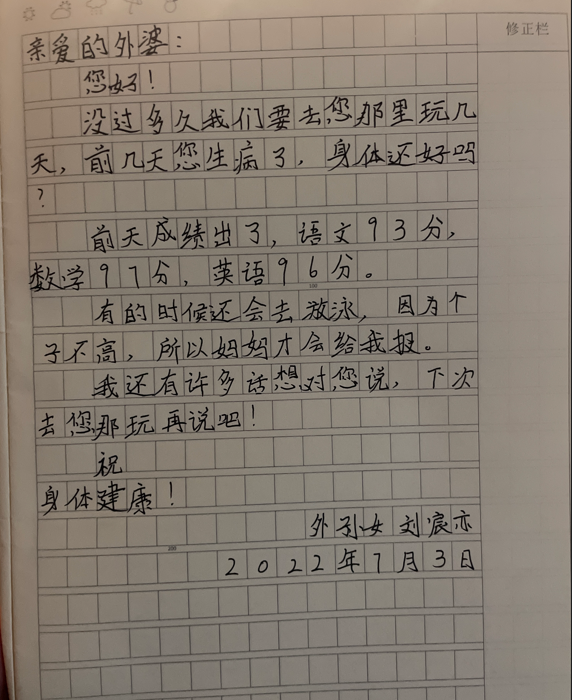 修正栏
亲爱的外婆:
您好!
没过多久我们要去您那里玩几
天,前几天您生病了,身体还好吗
?
前天成绩出了,语文93分,
数学97分,英语96分。
有的时候还会去放泳,因为个
子不高,所以妈妈才会给我报。
我还有许多话想对您说,下次
去您那玩再说吧!
祝
身体建康!
外孙女 刘宸亦
2022年7月3日